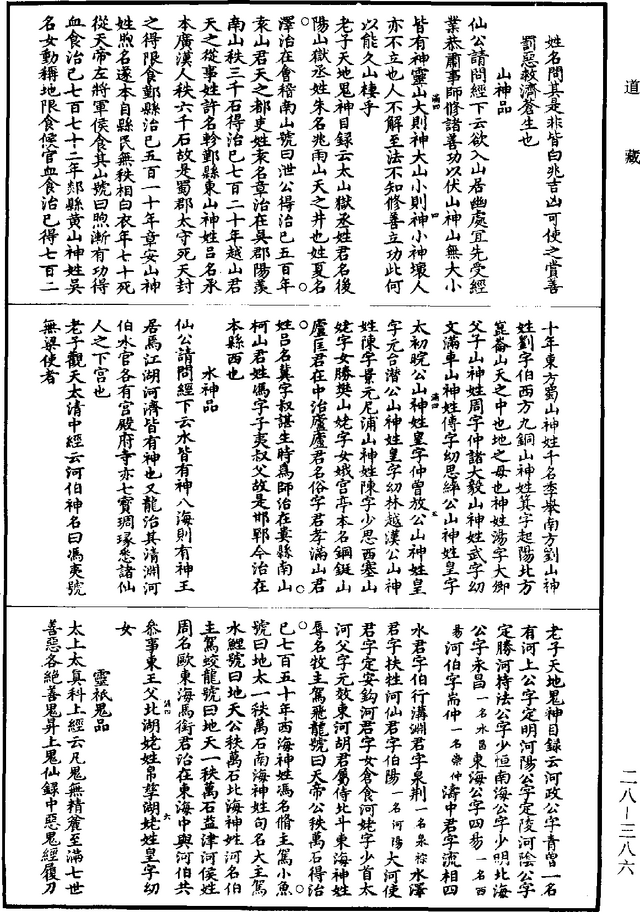 道藏
姓名問其是非皆白兆吉凶可使之賞善
罰惡救濟蒼生也
山神品
仙公請問經下云欲入山居幽處宜先受經
業恭肅事師修諸善功以伏山神山無大小
皆有神靈山大則神大山小則神小神壞人
亦不立也人不解至法不知修善立功此何
以能久山棲乎
老子天地鬼神目錄云太山獄丞姓君名後
陽山獄丞姓朱名兆雨山天之井也姓夏名
澤治在會稽南山號曰泄公得治已五百年
袁山君天之都吏姓袁名章治在吳郡陽羨
南山秩三千石得治已七百二十年越山君
天之從事姓許名軫鄞縣東山神姓呂名承
本廣漢人秩六千石故是蜀郡太守死天封
之得限食鄞縣治已五百一十年章安山神
姓煦名遂本自縣民無秩相白衣年七十死
從天帝左將軍侯食其山號曰煦漸有功得
血食治已七百七十二年郯縣黄山神姓吳
名女動稱地限食候官血食治已得七百二
十年東方蜀山神姓千名李舉南方劉山神
姓劉字伯西方九銅山神姓箕字起陽北方
崑崙山天之中也地之母也神姓湯字大鄉
父子山神姓周字仲諸大毅山神姓武字幼
文滿車山神姓傅字幼思絳公山神姓皇字
太初皖公山神姓皇字仲曾放公山神姓皇
字元台潛公山神姓皇字幼林越漢公山神
姓陳字景元尼浦山神姓陳字少思西塞山
姥字女勝樊山姥字女娥宮亭本名銅鋌山
廬匡君在中治廬廬君名俗字君孝滿山君
姓呂名冀字叔諶生時爲師治在婁縣南山
柯山君姓馮字子夷叔父故是邯鄲令治在
本縣西也
水神品
仙公請問經下云水皆有神八海則有神王
居焉江湖河濟皆有神也又龍治其清淵河
伯水官各有宮殿府寺亦七寶琱琢悉諸仙
人之下宮也
老子觀天太清中經云河伯神名曰馮夷號
無梁使者
老子天地鬼神目錄云河政公字青曾一名
有河上公字定明河陽公字定陵河陰公字
定勝河持法公字少恒南海公字少明北海
公字永昌一名水昌東海公字四昜一名西
昜河伯字耑仲一名崇仲濤中君字流相四
水君字伯行溝淵君字泉荆一名泉棕水澤
君字扶牲河仙君字伯陽一名河陽大河使
君字定安鈎河君字女倉食河姥字少首太
河父字元效東河胡君屬侍北斗東海神姓
辱名牧主駕飛龍號曰天帝公秩萬石得治
已七百五十年西海神姓馮名脩主駕小魚
號曰地太一秩萬石南海神姓句名大主駕
水鯉號曰地天公秩萬石北海神姓河名伯
主駕蛟龍號曰地天一秩萬石益津河侯姓
周名歐東海馬銜君治在東海中與河伯共
叅事東王父北湖姥姓帛孽湖姥姓皇字幼
女
靈祇鬼品
太上太真科上經云凡鬼無精麄至滿七世
善惡各絕善鬼昇上鬼仙錄中惡鬼經履刀
二八—三八六